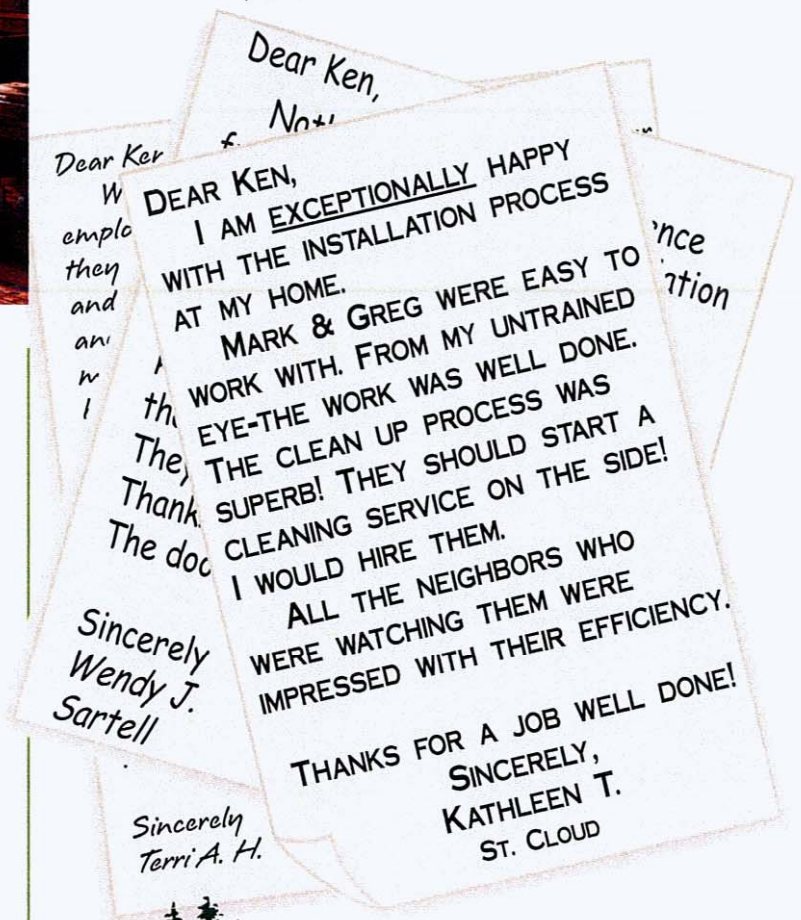 Dear Ken,
Dear
and
Thank
The
Sincerely
Wendy J.
Sartell
Sincerely
Terri A. H.
DEAR KEN,
I AM EXCEPTIONALLY HAPPY
WITH THE INSTALLATION PROCESS
AT MY HOME.
MARK & GREG WERE EASY TO
WORK WITH. FROM MY UNTRAINED
EYE-THE WORK WAS WELL DONE.
THE CLEAN UP PROCESS WAS
SUPERB! THEY SHOULD START A
CLEANING SERVICE ON THE SIDE!
I WOULD HIRE THEM.
ALL THE NEIGHBORS WHO
WERE WATCHING THEM WERE
IMPRESSED WITH THEIR EFFICIENCY.
THANKS FOR A JOB WELL DONE!
SINCERELY,
KATHLEEN T.
ST. CLOUD